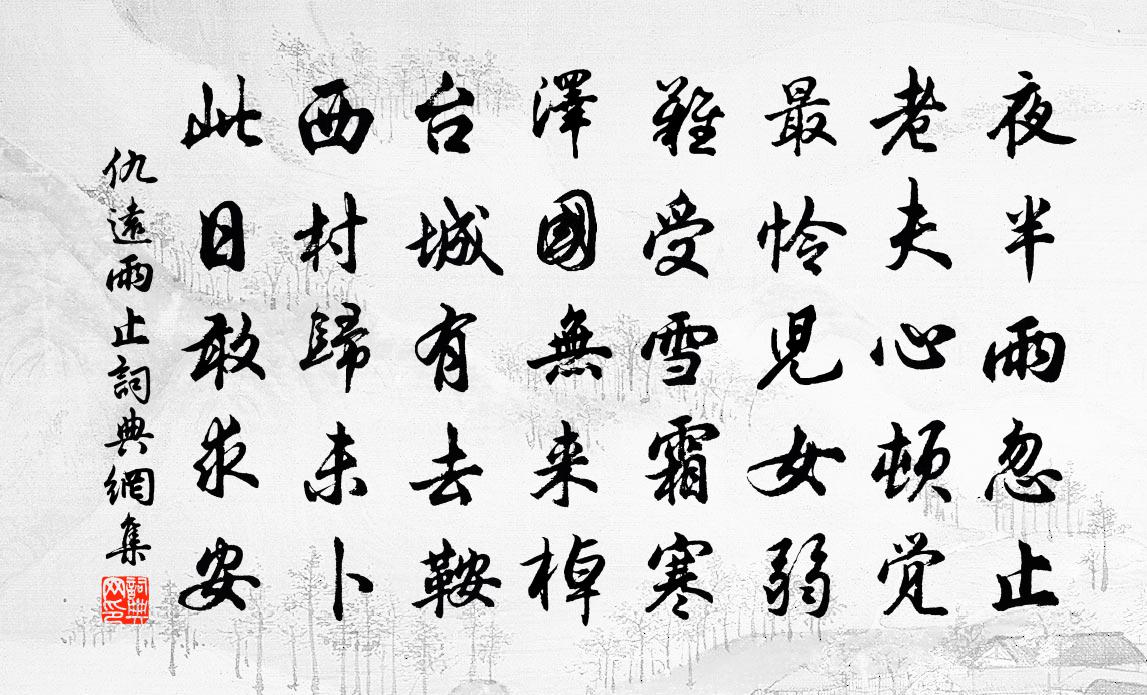 夜半雨忽止
老夫心頓觉
最怜児女弱
難受雪霜寒
澤國無来棹
台城有去鞍
西村歸未卜
此日敢求安
仇遠雨止詞典網集
詞典網印